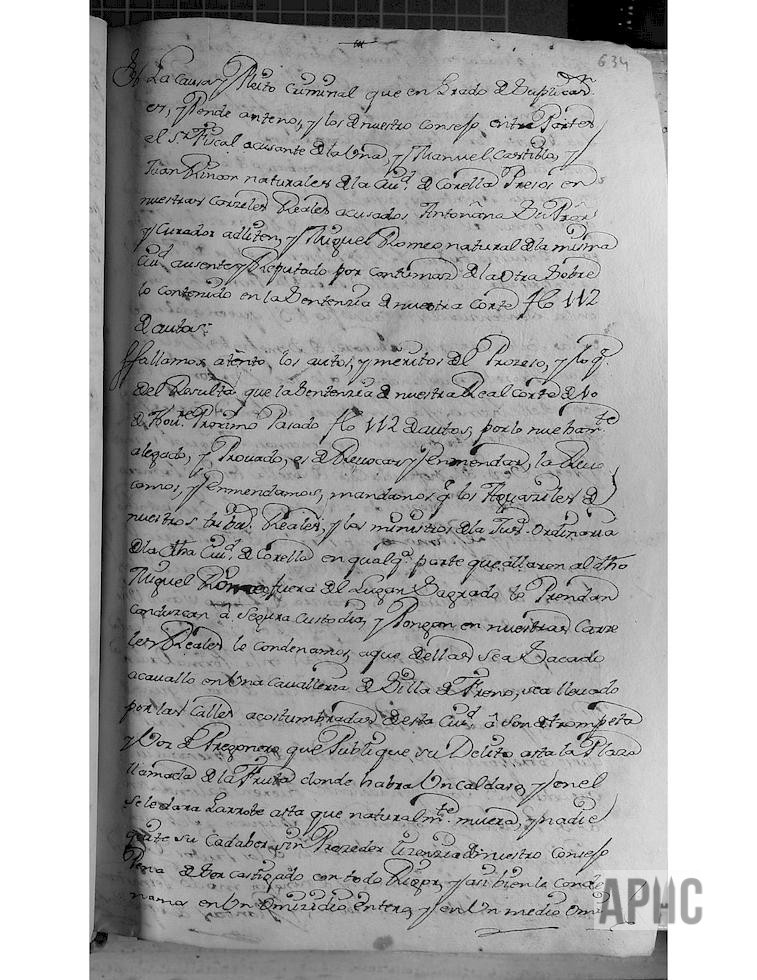 634
En La Causa y Pleito Criminal que en Grado de Suplicaz.on
es, y Pende ante nos, y los de nuestro Consejo entre Partes
el S.r Fiscal acusante de la Una, y Manuel Castillo, y
Juan Rincon naturales de la Ciu.d de Corella Presos en
nuestras Carzeles Reales acusados Antoñana Su Pror
y Curador adliten, y Miguel Romeo natural de la misma
Ciu.d ausente y Reputado por contumaz de la otra Sobre
lo contenido en la Sentenzia de nuestra Corte flo 112
de autos:
ffallamos atento los autos, y meritos del Prozeso, y lo q.
del Resulta que la Sentenzia de nuestra Real Corte de 10
de Nou.re Proximo Pasado flo 112 de autos, por lo nuebam.te
alegado, y Prouado, es de Reuocar y enmendar, la Reuo
camos, y enmendamos, mandamos q. los Alguaziles de
nuestros tribu.s Reales, y los ministros de la Jus.a Ordinaria
de la dha Ciu.d de Corella en qualq.a parte que allaren al dho
Miguel Romeo fuera del Lugar Sagrado lo Prendan
conduzcan a segura custodia, y Pongan en nuestras Carze
les Reales le condenamos, a que dellas sea Sacado
acauallo en Una Caualleria de Silla de Freno, sea lleuado
por las Calles acostumbradas desta Ciu.d â son de trompeta
y Voz de Pregonero que Publique su Delito asta la Plaza
llamada de la Fruta donde habra Un caldaso, y en el
se le dara Garrote asta que naturalm.te muera, y nadie
quite su Cadaber sin Prozeder lizenzia de nuestro Consejo
Pena de Ser castigado con todo Rigor, y asi bien le Conde
namos en Un Omizidio entero, y en Un medio Omi
APHC